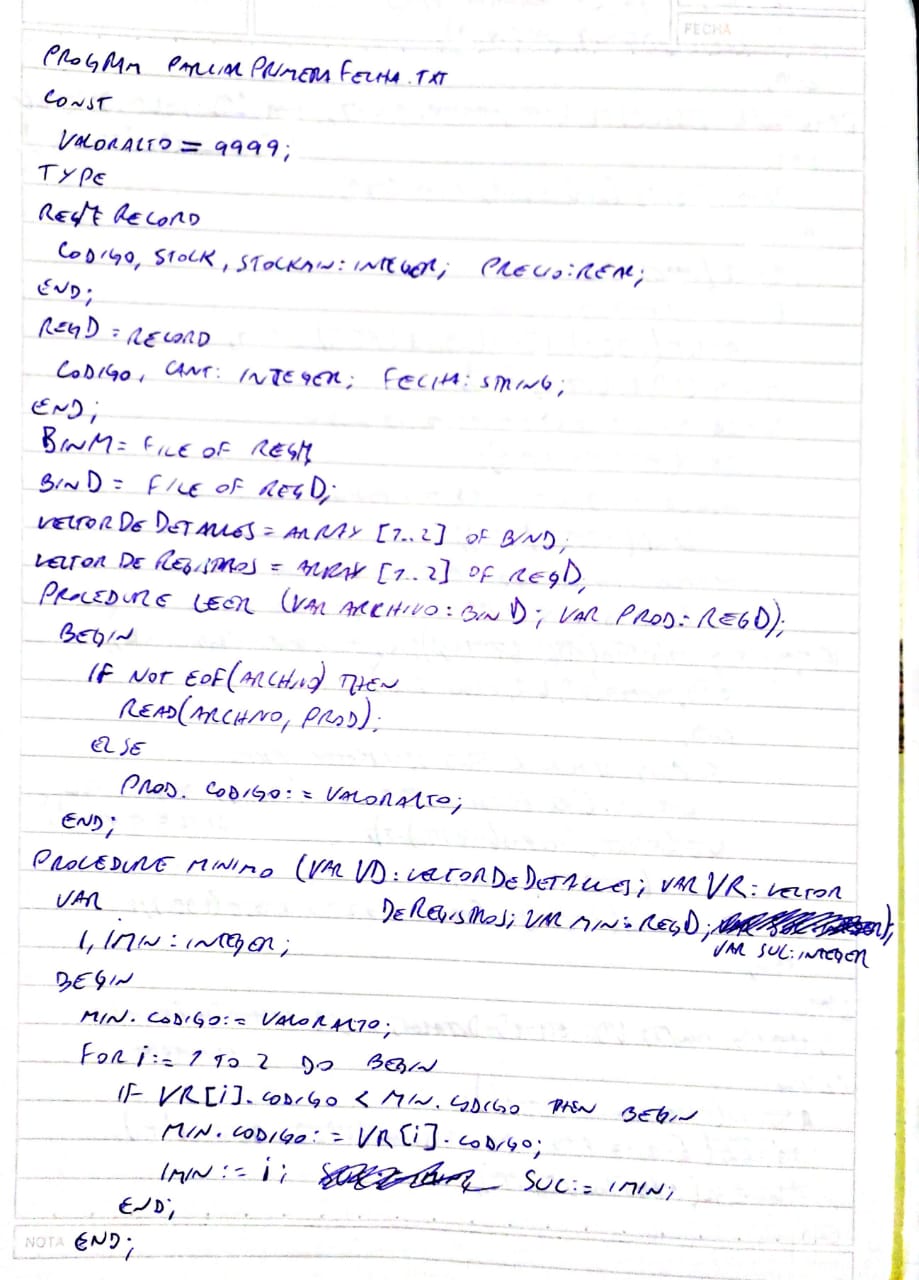 FECHA
PROGRAM PARCIAL PRIMERA FECHA.TXT
CONST
VALORALTO = 9999;
TYPE
REGM= RECORD
CODIGO, STOCK, STOCKMIN: INTEGER; PRECIO: REAL;
END;
REGD = RECORD
CODIGO, CANT: INTEGER; FECHA: STRING;
END;
BINM= FILE OF REGM;
BIND = FILE OF REGD;
VECTOR DE DETALLES = ARRAY [1..2] OF BIND;
VECTOR DE REGISTROS = ARRAY [1..2] OF REGD;
PROCEDURE LEER (VAR ARCHIVO: BIND; VAR PROD: REGD);
BEGIN
IF NOT EOF(ARCHIVO) THEN
READ(ARCHIVO, PROD);
ELSE
PROD. CODIGO:= VALORALTO;
END;
PROCEDURE MINIMO (VAR VD: VECTORDEDETALLES; VAR VR: VECTOR
DEREGISTROS; VAR MIN: REGD;
VAR SUC: INTEGER);
VAR
I, IMIN: INTEGER;
BEGIN
MIN. CODIGO:= VALORALTO;
FOR i:= 1 TO 2 DO BEGIN
IF VR[i].CODIGO < MIN. CODIGO THEN BEGIN
MIN. CODIGO:= VR[i].CODIGO;
IMIN:= i; SUC:= IMIN;
END;
NOTA END;